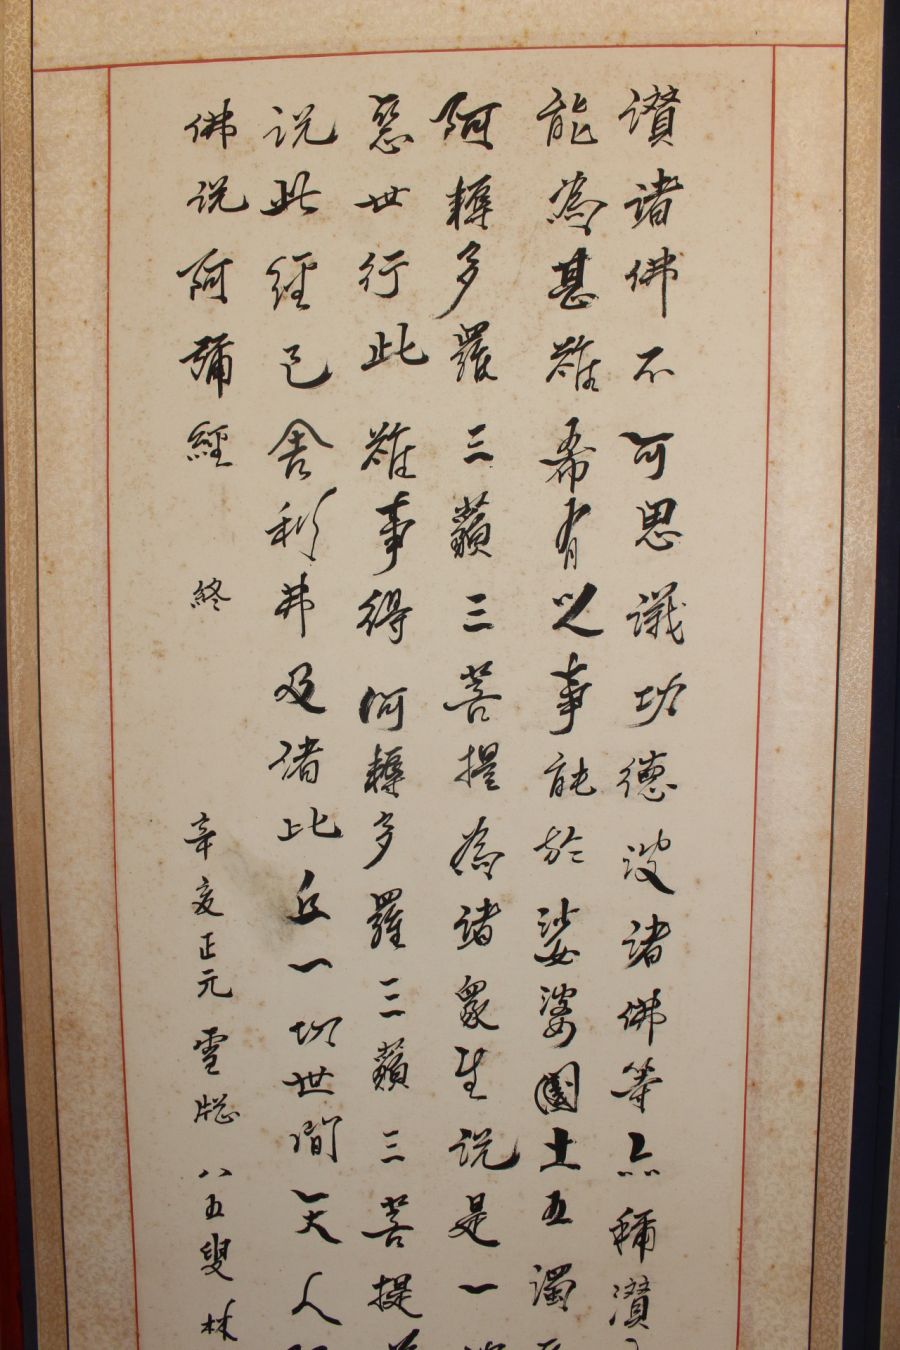 讚諸佛不可思議功德彼諸佛等亦稱讚
能為甚難希有之事能於娑婆國土五濁惡
阿耨多羅三藐三菩提為諸眾生說是一
惡世行此難事得阿耨多羅三藐三菩提
說此經已舍利弗及諸比丘一切世間天人
佛說阿彌經 終 辛亥正元雪牕八五叟林